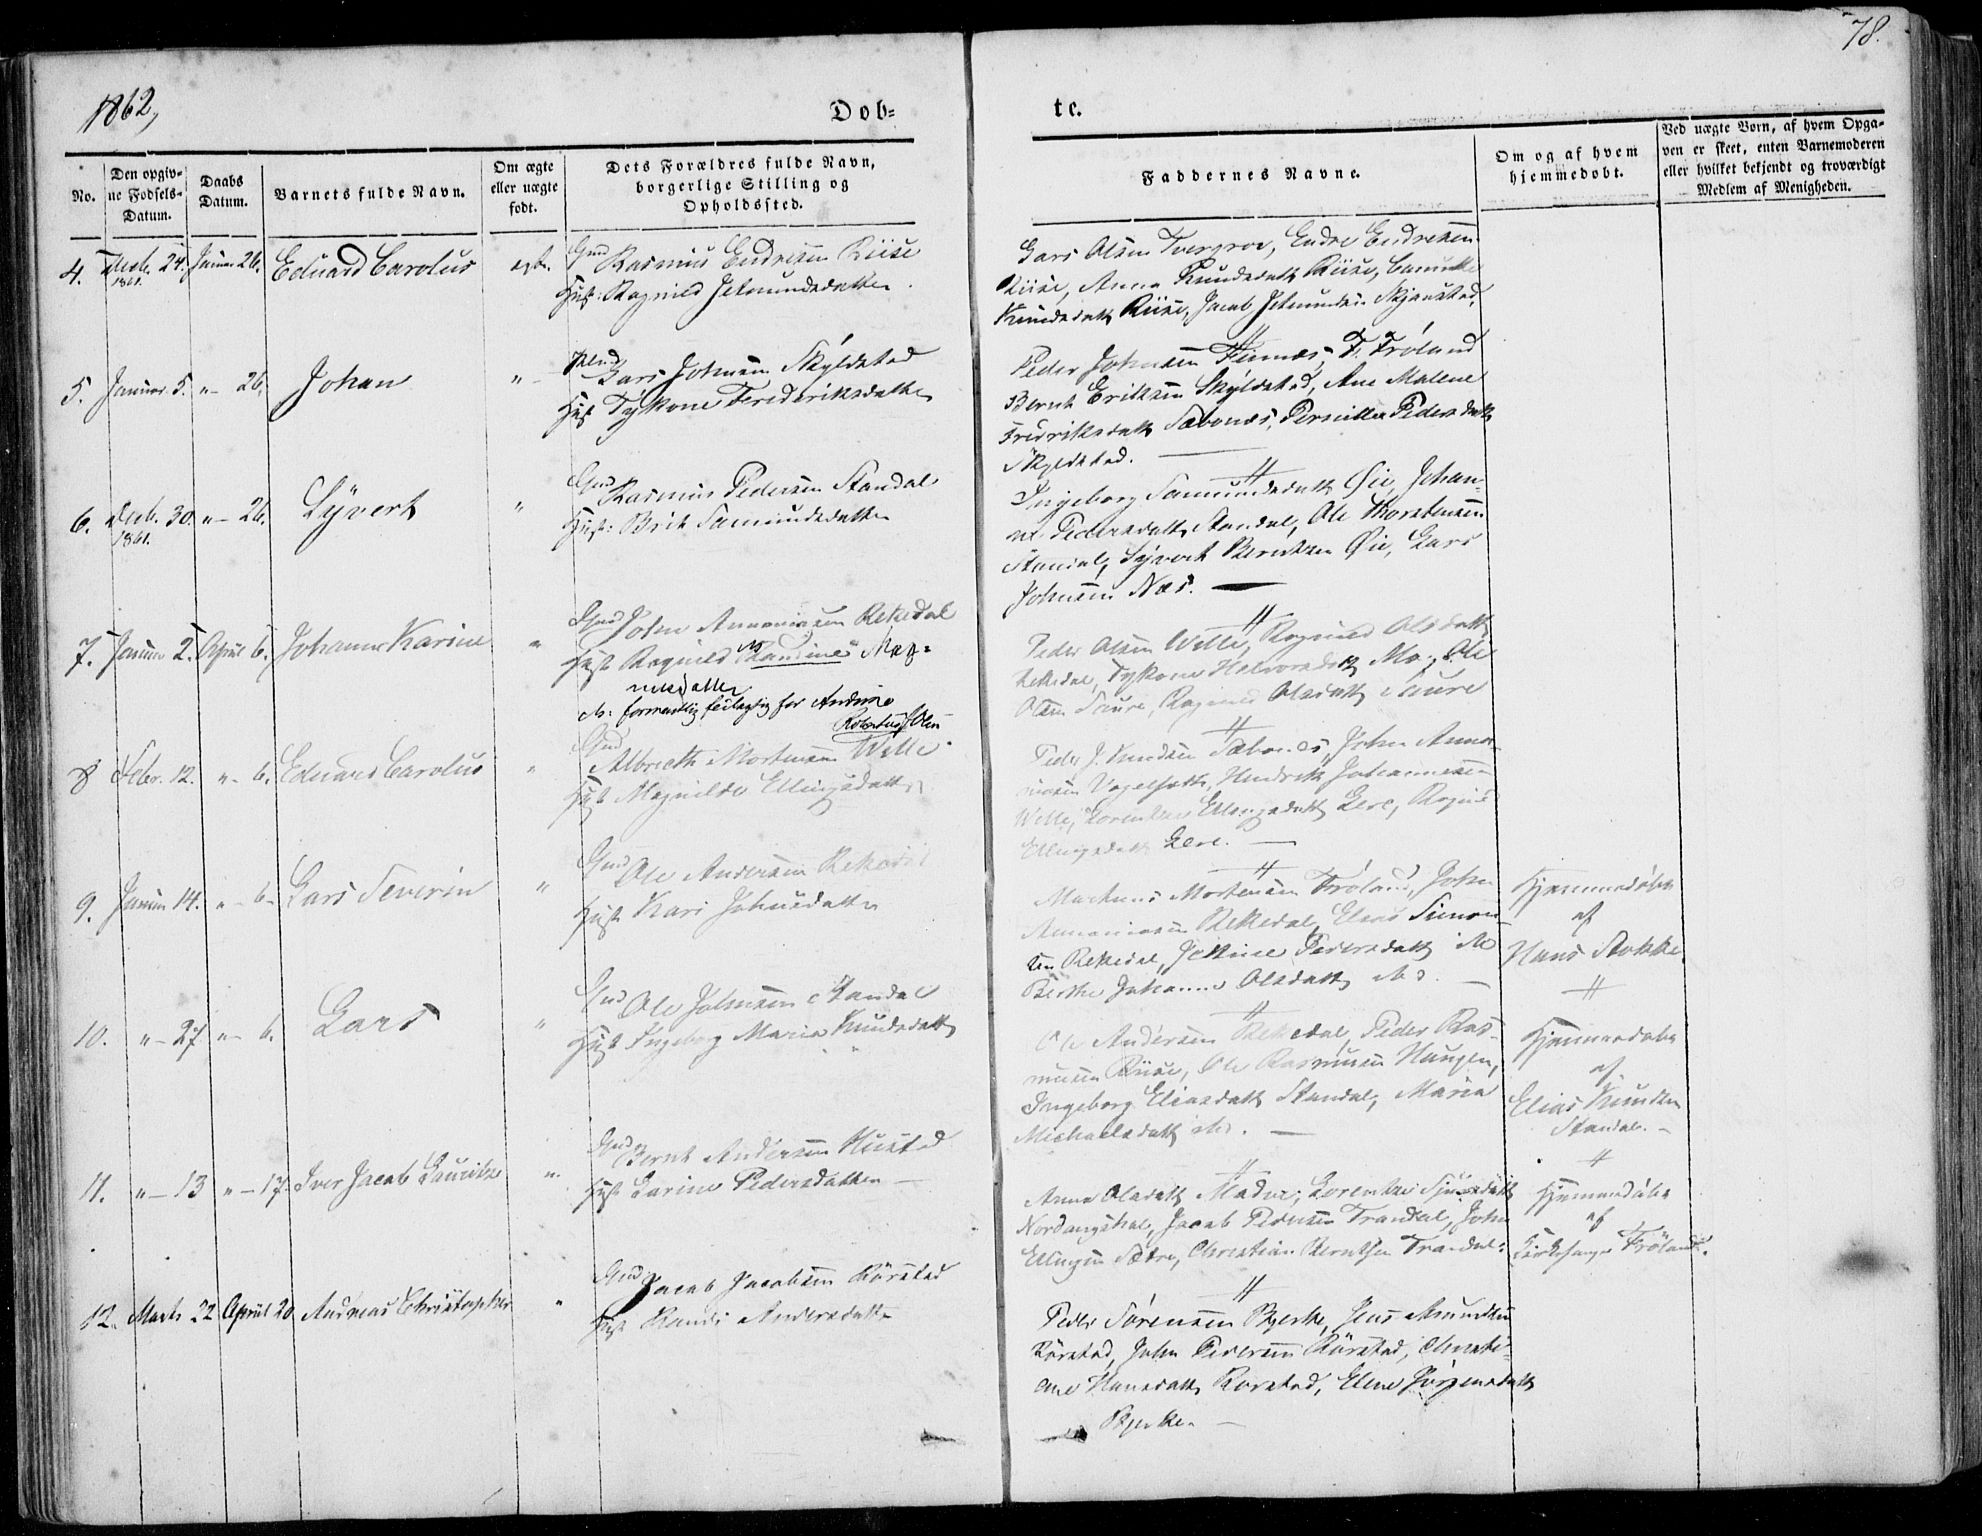 78.
1862,
Dob=
te.
No.
Den opgiv=
ne Fodsels=
Datum.
Daabs
Datum.
Barnets fulde Navn.
Om ægte
eller uægte
fodt.
Dets Forældres fulde Navn,
borgerlige Stilling og
Opholdssted.
Faddernes Navne.
Om og af hvem
hjemmedobt.
Ved uægte Born, af hvem Opga=
ven er skeet, enten Barnemoderen
eller hvilket bekjendt og troværdigt
Medlem af Menigheden.
4. Decb. 24. Januar 26. Eduard Carolus ægte. Gmd Rasmus Endresen Riise
1861. Hust: Ragnild Jetmundsdatter.
Lars Olsen Tvergrov, Endre Endresen
Riise, Anna Knudsdatt Riise,
Knudsdatt Riise, Jacob Jetmundsen Skjaastad.
5. Januar 5. "- 26. Johan "- Lars Johnsen Skyldstad
Hust Sykone Frederiksdatter
Peder Johnsen Finnæs, F. Fröland
Bernt Eriksen Skyldstad, Ane Malene
Fredriksdatt Sæbonæs, Pernille Pedersdatt
Skyldstad.
6. Decb. 30. "- 26. Syvert " Gmd Rasmus Pedersen Standal
1861. Hust: Brit Samundsdatter
Ingeborg Samundsdatt Øie, Johan-
ne Pedersdatt Standal, Ole Thorstensen
Standal, Syvert Berntsen Øie, Lars
Johnsen Næs.
7. Januar 2. April 6. Johanne Karine " Gmd John Annaniasen Rekkedal
Hust Ragnild Mag=
nusdatter
N: formentlig feilagtig for Andrine
Peder Olsen Welle, Ragnild Olsdatt
Rekkedal, Sykone Halvorsdatt Mo, Ole
Olsen Saure, Ragnild Olsdatt Saure
8 Febr. 12. "- 6. Eduard Carolus " Gmd Albrecth Mortensen Welle.
Hust Magnilde Ellingsdatter
Peder J. Knudsen Sæbonæs, John Anna-
niasen Vogelsæth, Hendrik Johannesen
Welle, Lorentze Ellingsdatt Lere,
Ellingsdatt Lere.
9. Januar 14. "- 6- Lars Severin " Gmd Ole Andersen Rekkedal
Hust Kari Johnsdatter
Martinus Mortensen Fröland, John
Annaniasen Rekkedal, Elias Simon-
sen Rekkedal, Jettine Pedersdatt
Berthe Johanne Olsdatt
Hjemmedöbt
af
Hans Stokke
10. "- 27 "- 6. Lars " Gmd Ole Johnsen Standal
Hust Ingeborg Maria Knudsdatt
Ole Andersen Rekkedal, Peder Ras-
musen Riise, Ole Rasmusen Haugen,
Ingeborg Eliasdatt Standal, Maria
Michaelsdatt
Hjemmedöbt
af
Elias Knudsen
Standal. -
11. "- 13 "- 17. Iver Jacob Lauritz " Gmd Bernt Andersen Hustad
Hust Karine Pedersdatter
Anna Olsdatt, Lorentze
Nordangsdal, Jacob Pedersen Trandal, John
Ellingsen Sætre, Christian Berntsen Trandal.
Hjemmedöbt
af
Kirkesanger Fröland.
12. Marts 22 April 20 Andreas Christopher " Gmd Jacob Jacobsen Rörstad
Hust Randi Andersdatter
Peder Sörensen Bjerke, Jens Amundsen
Rörstad, John Pedersen Rörstad, Christi-
ane Hansdatt Rörstad, Elene Jörgensdatt
Bjerke.